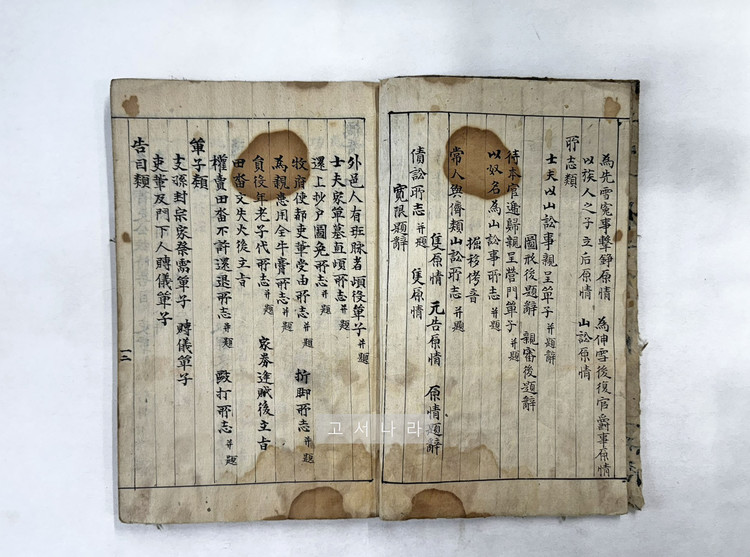 為先雪寃事擊錚原情 為伸雪後復官爵事原情
以族人之子立后原情 山訟原情
所志類
士夫以山訟事親呈單子并題辭
圖形後題辭 親審後題辭
待本官遞歸親呈營門單子并題
以奴名為山訟事所志并題
掘移侤音
常人與儕類山訟所志并題
隻原情 元告原情 原情題辭
債訟所志并題 隻原情
寬限題辭
外邑人有班脉者頉役單子并題
士夫家單墓直頉所志并題
還上抄戶圖免所志并題
牧府使都吏單受由所志并題 折脚所志并題
為親患用全牛膏所志并題
負役年老子代所志并題 家券逢賊後立旨
田畓文失火後立旨
權賣田畓不許還退所志并題 毆打所志并題
單子類
支孫封宗家祭需單子 賻儀單子
吏輩及門下人賻儀單子
告目類
고서나라